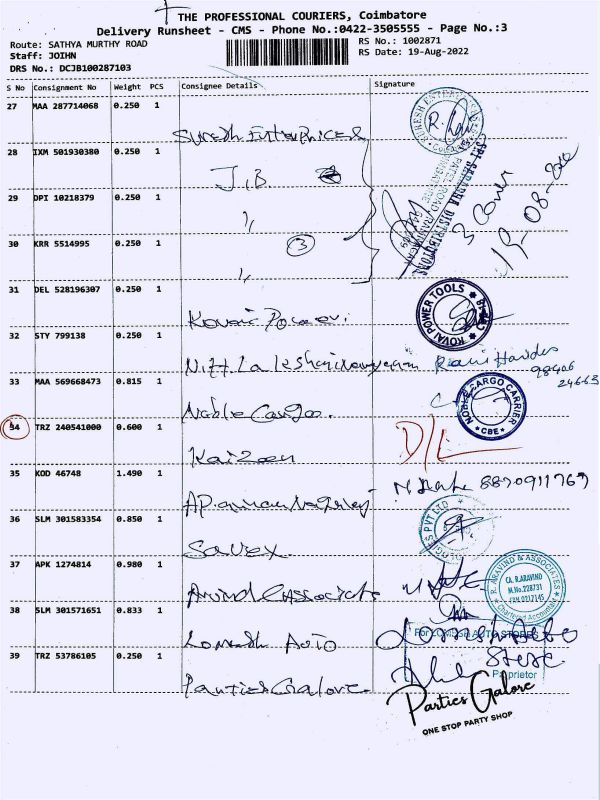 THE PROFESSIONAL COURIERS, Coimbatore
Delivery Runsheet - CMS - Phone No.:0422-3505555 - Page No.:3
Route: SATHYA MURTHY ROAD
Staff: JOIHN
DRS No.: DCJB100287103
RS No.: 1002871
RS Date: 19-Aug-2022
S No Consignment No Weight PCS Consignee Details Signature
27 MAA 287714068 0.250 1
SURESH ENTERPRICES
28 IXM 501930380 0.250 1
J.B.
29 DPI 10218379 0.250 1
,,
30 KRR 5514995 0.250 1
3
,,
SRI SARADHA DISTRIBUTORS
3 Cover
19-08-2022
31 DEL 528196307 0.250 1
Kovai Power.
KOVAI POWER TOOLS
32 STY 799138 0.250 1
98406
24663
33 MAA 569668473 0.815 1
Noble Cargo.
NOBLE CARGO CARRIER
CBE
34 TRZ 240541000 0.600 1
Kaizen
D/L
35 KOD 46748 1.490 1
8870911769
36 SLM 301583354 0.850 1
Savex
PVT LTD
37 APK 1274814 0.980 1
Arvind & Associate
R. ARAVIND & ASSOCIATES
CA. R.ARAVIND
M.No.228731
FRN.021714S
Chartered Accountants
38 SLM 301571651 0.833 1
Lomesh Auto
For LOMESH AUTO STORES
Store
Proprietor
39 TRZ 53786105 0.250 1
Parties Galore
Parties Galore
ONE STOP PARTY SHOP